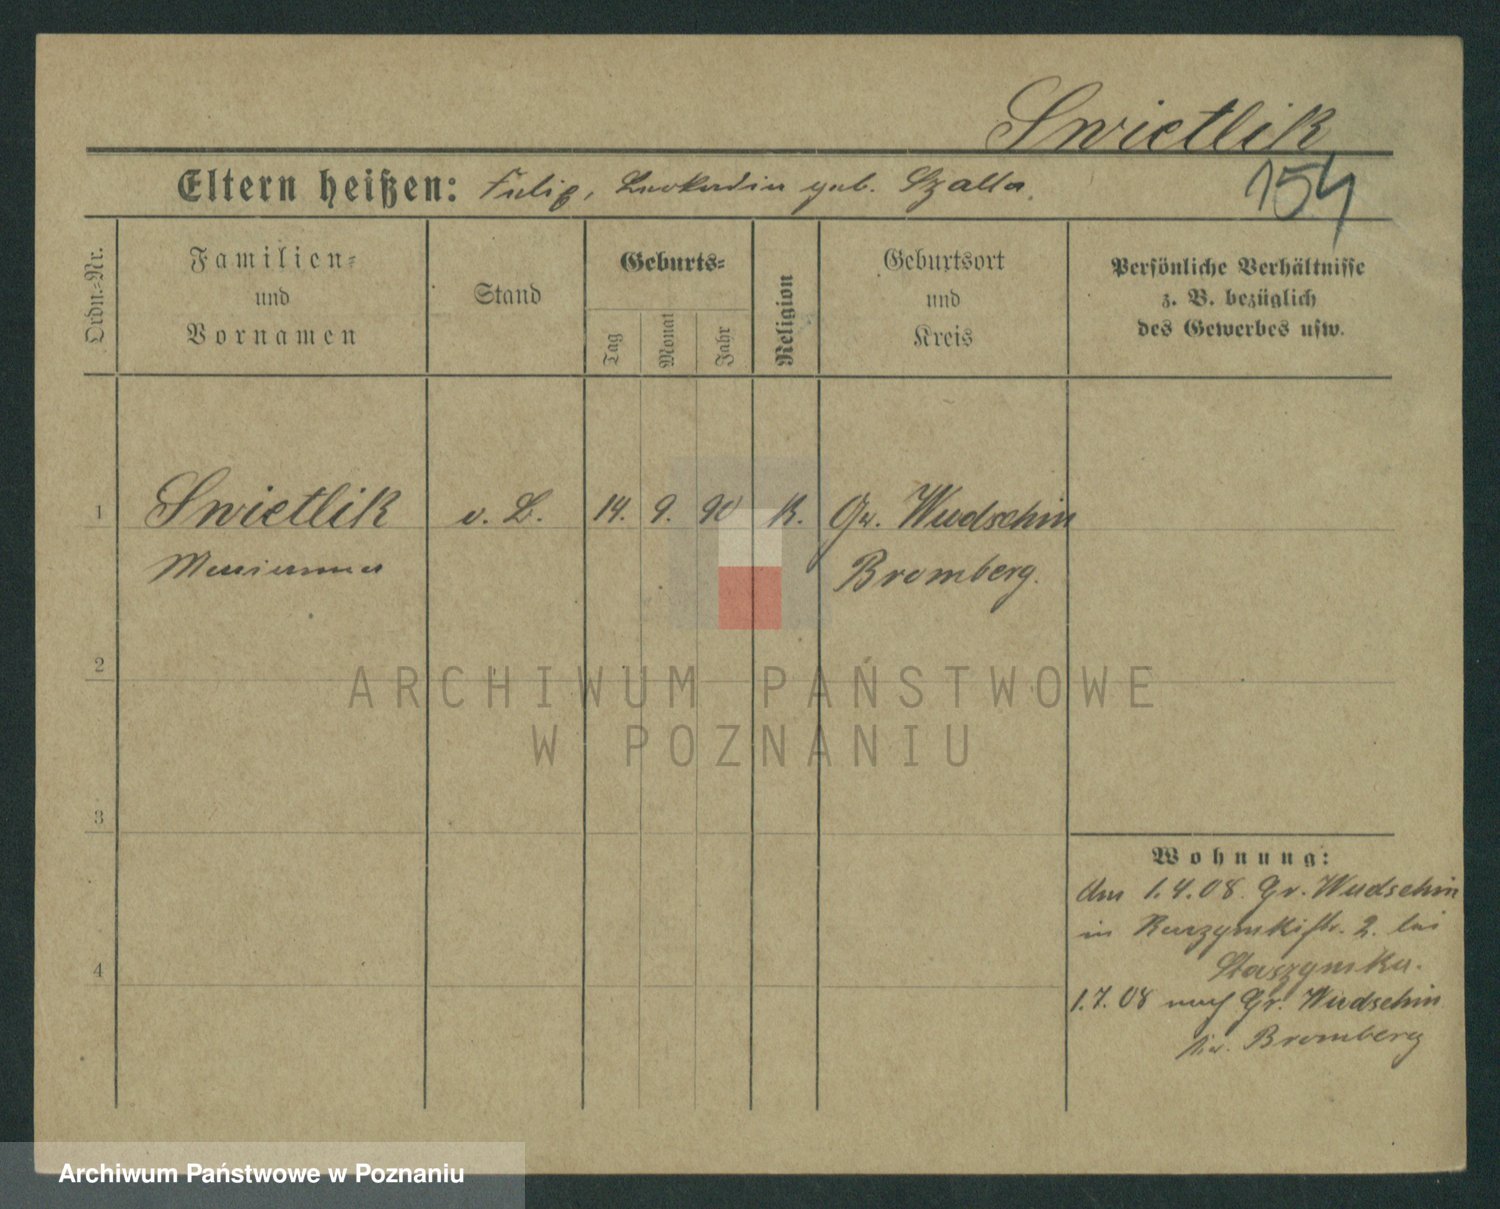 Swietlik
154
Eltern heißen: Leokadia geb. Szalla.
Ordn.-Nr.
Familien-
und
Vornamen
Stand
Geburts-
Tag
Monat
Jahr
Religion
Geburtsort
und
Kreis
Persönliche Verhältnisse
z. B. bezüglich
des Gewerbes usw.
1
Swietlik
Marianna
o. B.
14. 9. 90
K.
Gr. Wudschin
Bromberg.
2
3
4
Wohnung:
1.4.08. Gr. Wudschin
in 2. bei
1.7.08 nach Gr. Wudschin
Bromberg
ARCHIWUM PAŃSTWOWE
W POZNANIU
Archiwum Państwowe w Poznaniu